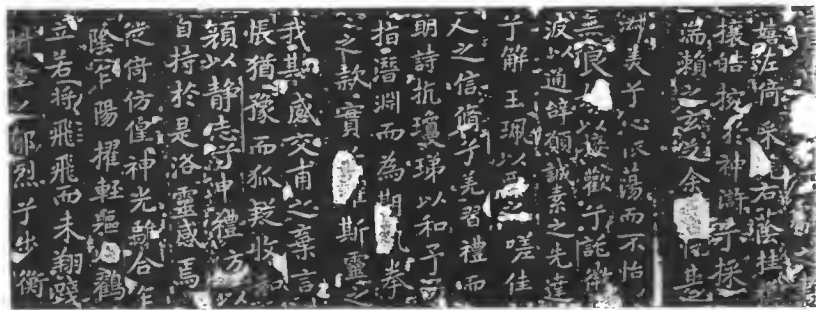 嬉左倚采旄右蔭桂
攘皓捥於神滸兮採
湍瀨之玄芝余其
淑美兮心振蕩而不怡
無良以接歡兮託微
波以通辭願誠素之先達
兮解玉珮以要之嗟佳
人之信脩兮羌習禮而
明詩抗瓊珶以和予兮
指潛淵而為期執拳
之款實懼斯靈之
我欺感交甫之棄言
悵猶豫而狐疑收和
顏以靜志兮申禮方以
自持於是洛靈感焉
從倚仿偟神光離合乍
陰乍陽擢輕軀以鶴
立若將飛飛而未翔踐
椒塗之郁烈兮步衡